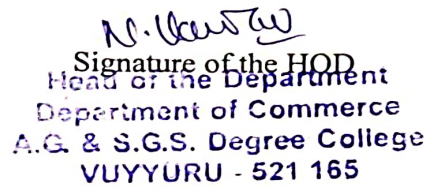 Signature of the HOD
Head of the Department
Department of Commerce
A.G. & S.G.S. Degree College
VUYYURU - 521 165